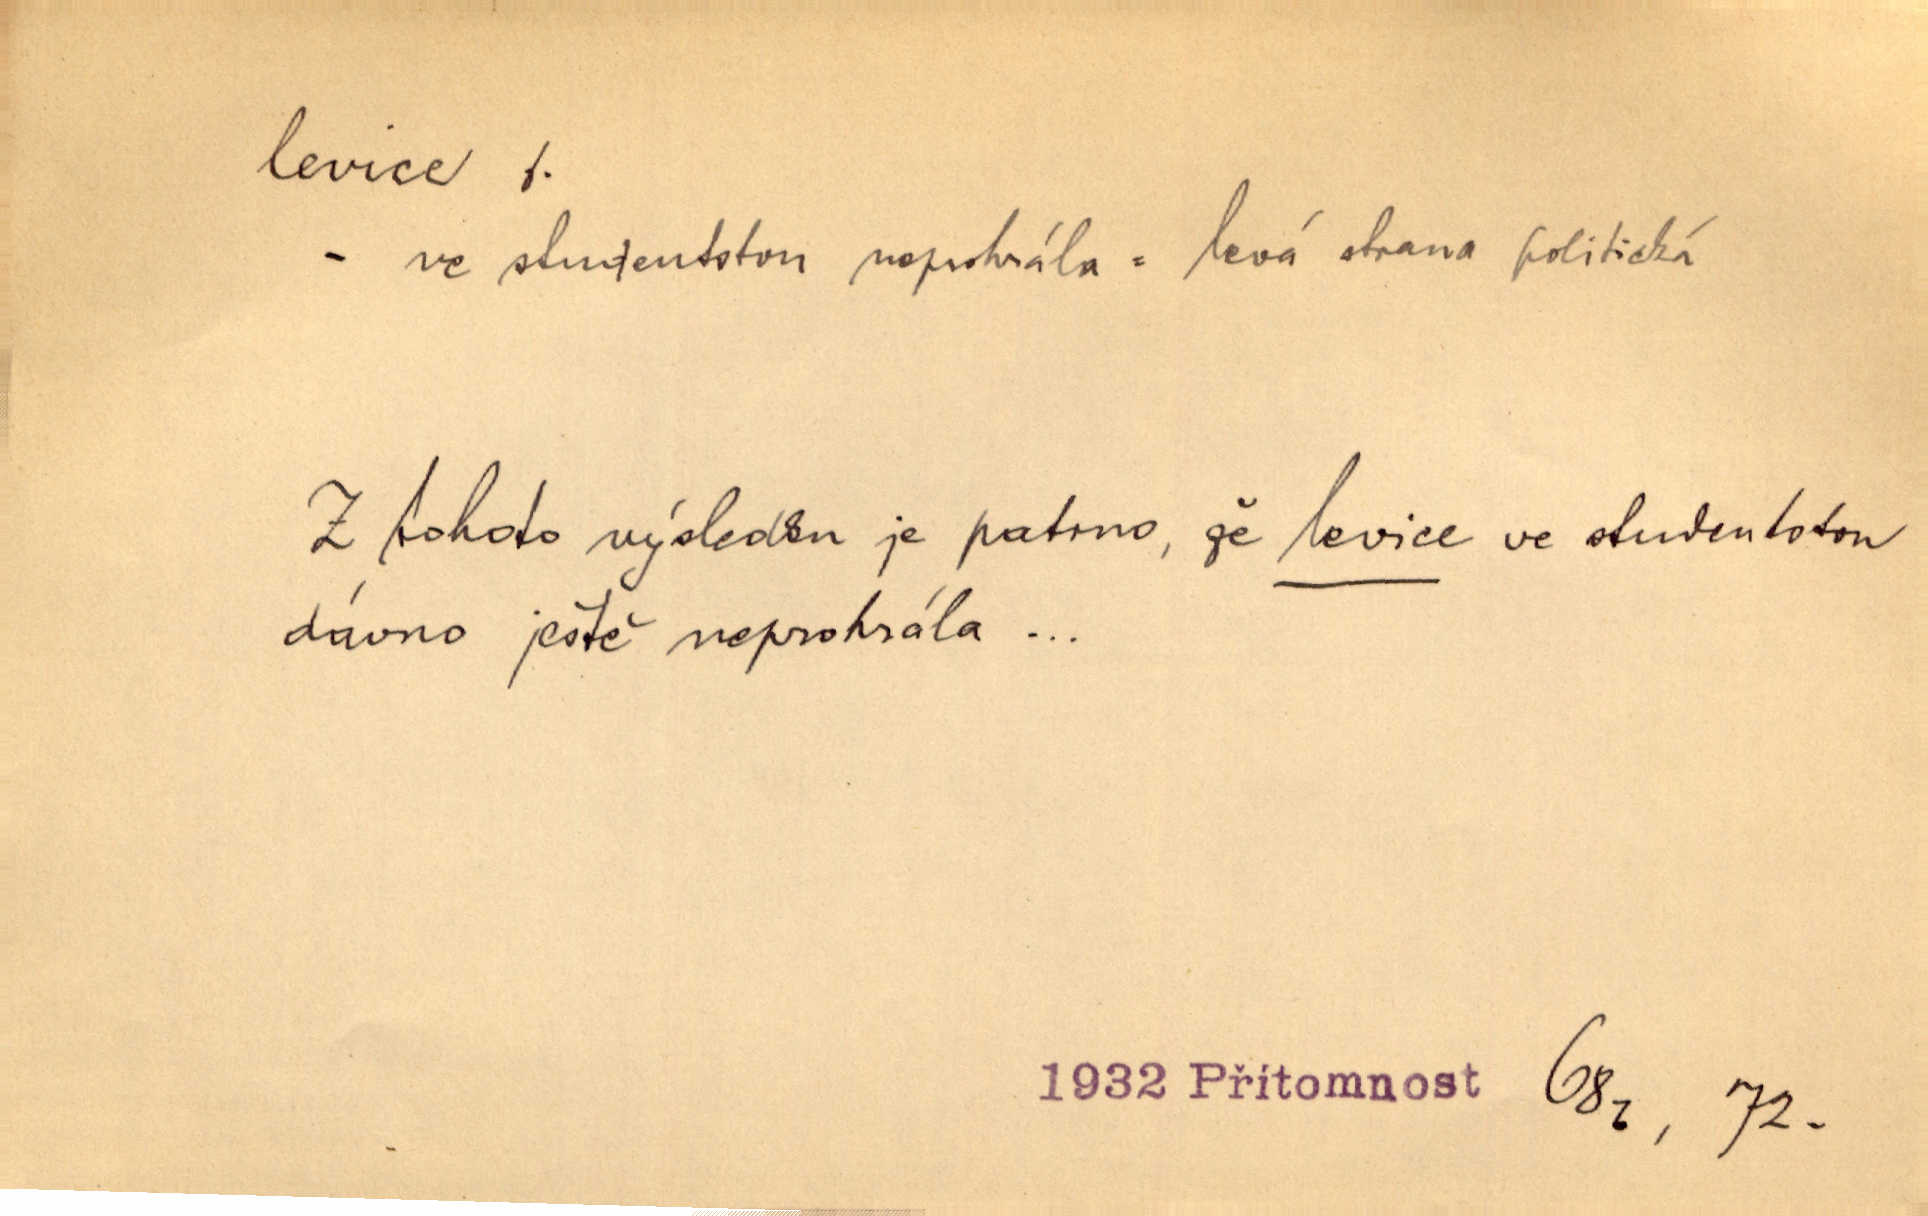 levice f.
- ve studentstvu neprohrála = levá strana politická
Z tohoto výsledku je patrno, že levice ve studentstvu
dávno ještě neprohrála ...
1932 Přítomnost 68₂, 72.